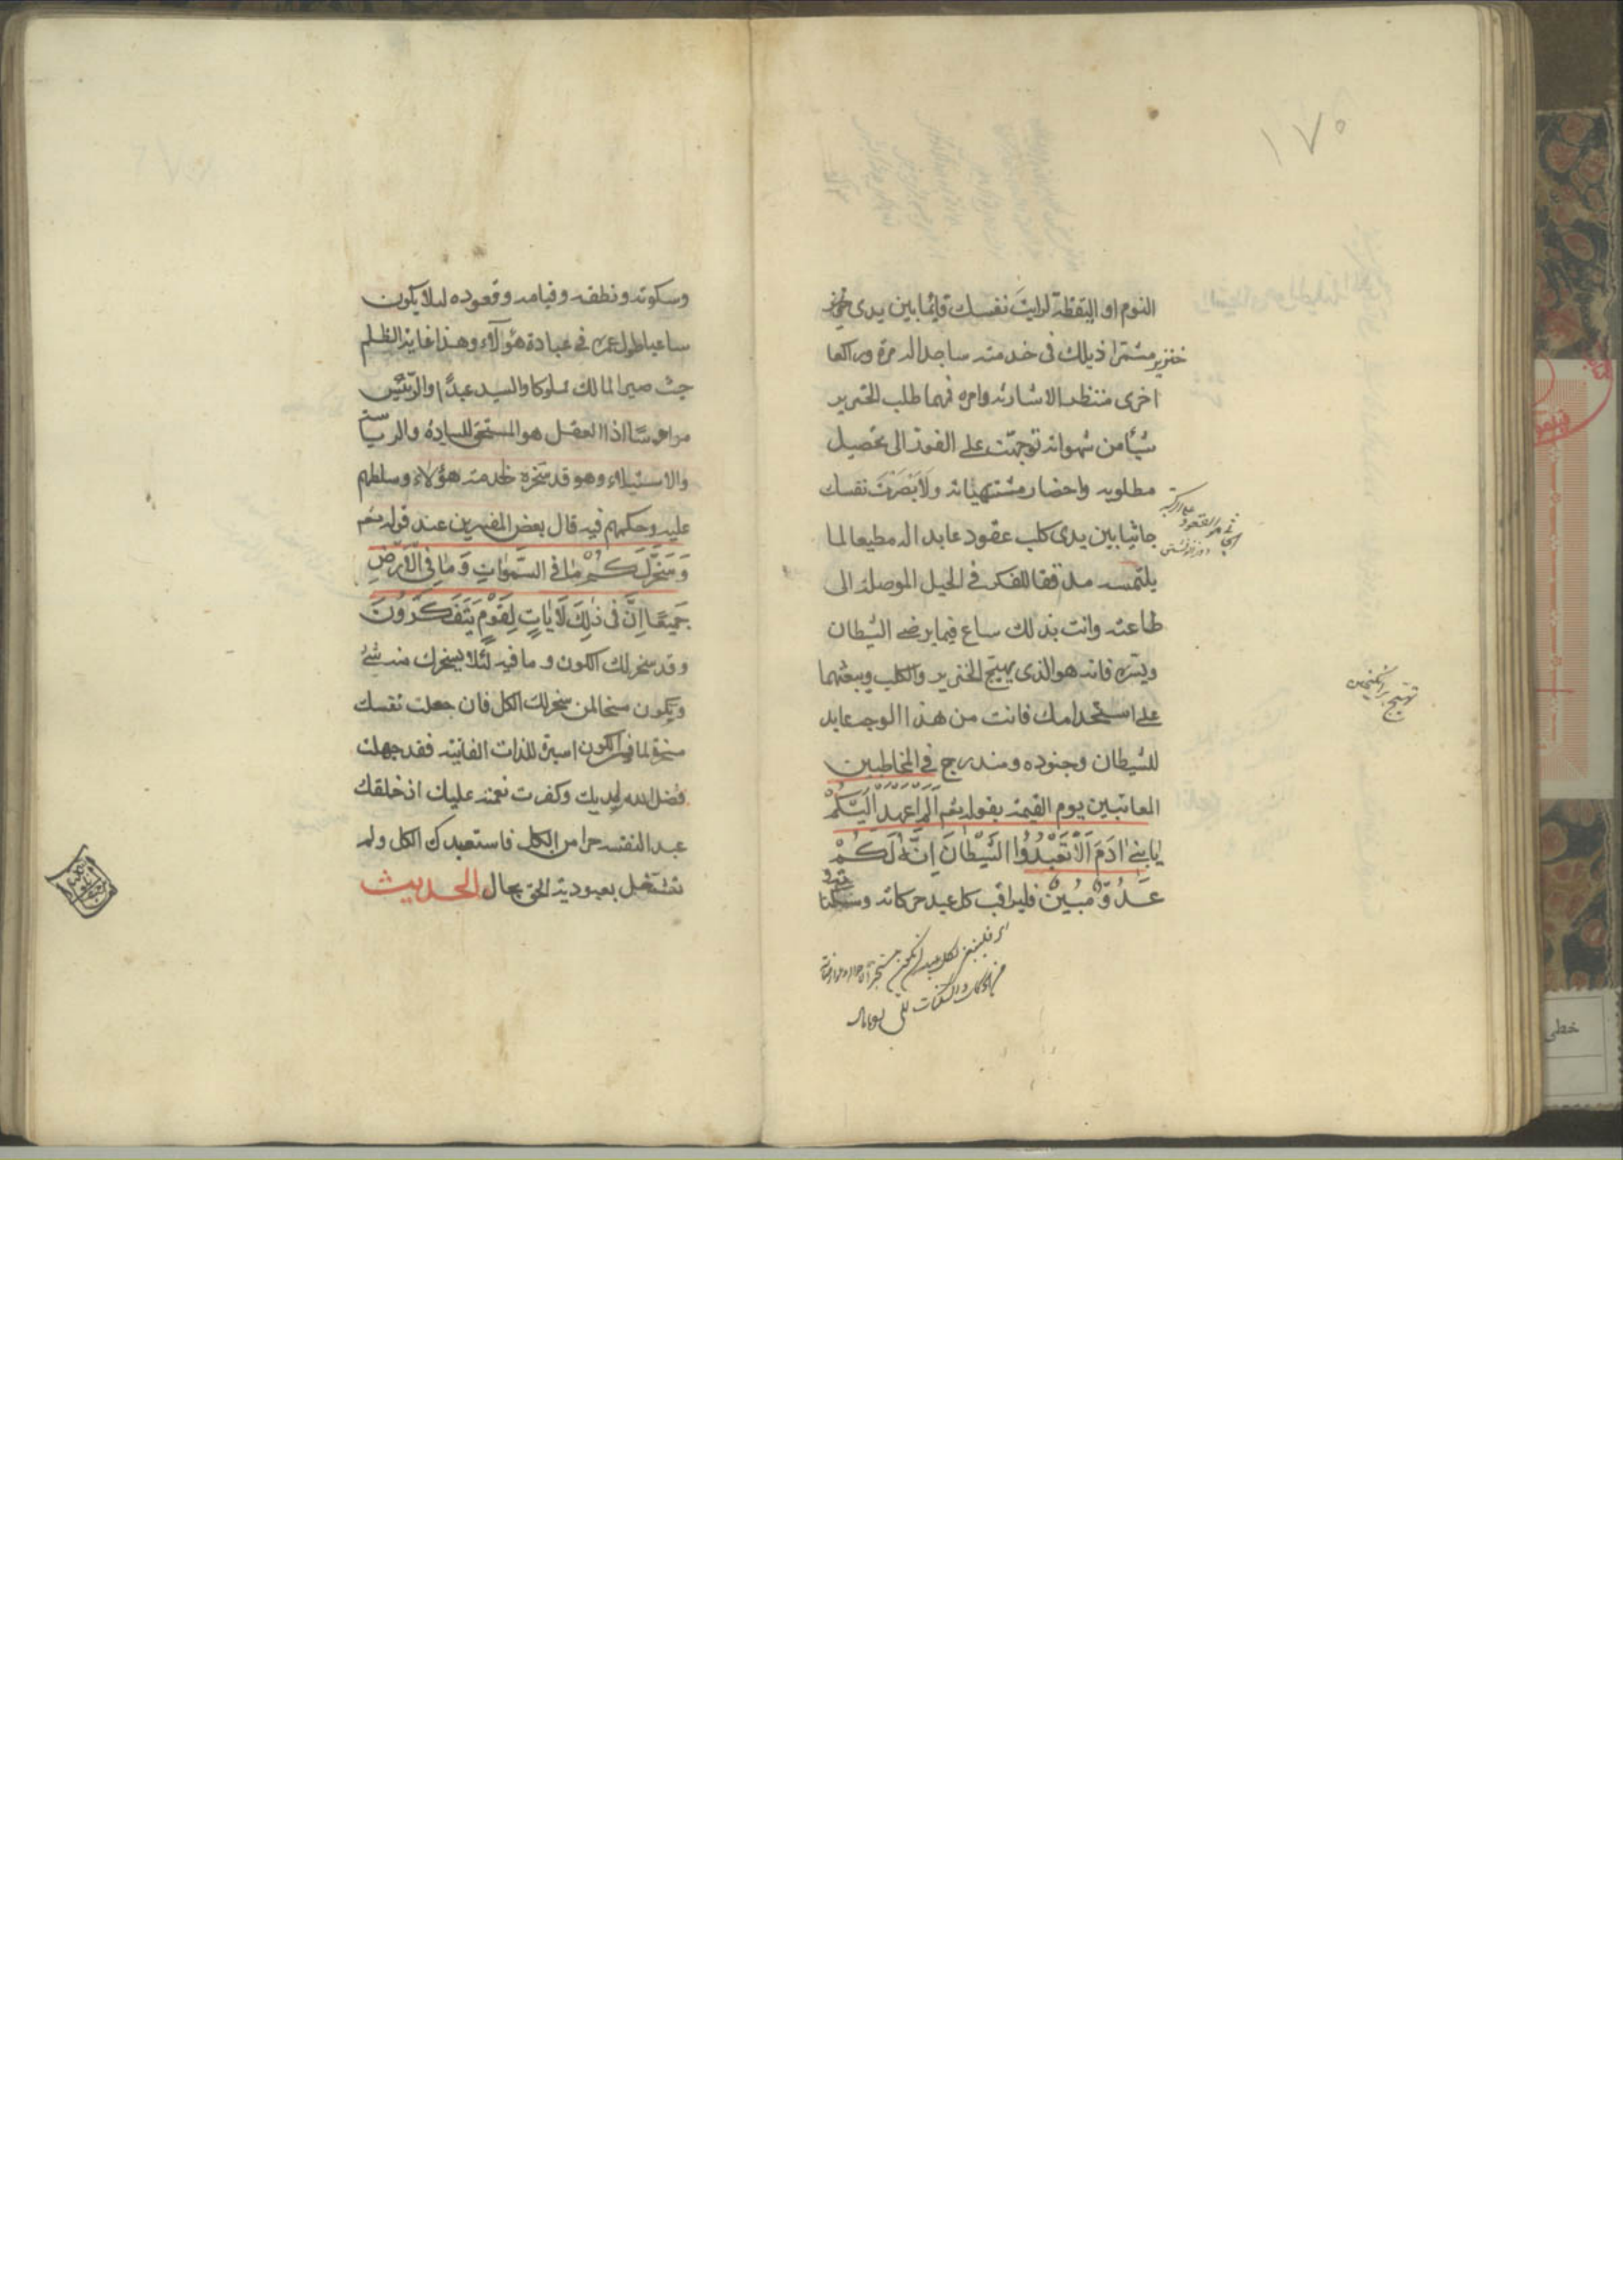 ١٧٥
النوم او اليقظة لرايت نفسك قائما بين يدى
خنزير مشمرا ذيلك فى خدمته ساجدا له مرة وراكعا
اخرى منتظرا لاشارته وامره فمهما طلب الخنزير
شيأ من شهواته توجهت على الفور الى تحصيل
مطلوبه واحضار مشتهياته ولابصرت نفسك
جاثيا بين يدى كلب عقود عابدا له مطيعا لما
يلتمسه مدققا للفكر فى الحيل الموصلة الى
طاعته وانت بذلك ساع فيما يرضى الشيطان
ويسره فانه هو الذى يهيج الخنزير والكلب ويبعثهما
على استخدامك فانت من هذا الوجه عابد
للشيطان وجنوده ومندرج فى المخاطبين
المعاتبين يوم القيمة بقوله تعم اَلَمْ اَعْهَدْ اِلَيْكُمْ
يَا بَنِىٓ اٰدَمَ اَلَّا تَعْبُدُوا الشَّيْطَانَ اِنَّهُ لَكُمْ
عَدُوٌّ مُبِينٌ فليراقب كل عبد حركاته وسكناته
الجاثى هو القعود على الركبة
تهيج برانكيختن
وسكوته ونطقه وقيامه وقعوده لئلا يكون
ساعيا طول عمره فى عبادة هؤلآء وهذا غاية الظلم
حيث صير المالك مملوكا والسيد عبدًا والرئيس
مرءوسًا اذ العقل هو المستحق للسيادة والرياسة
والاستيلاء وهو قد سخره لخدمة هؤلاء وسلطهم
عليه وحكمهم فيه قال بعض المفسرين عند قوله تعم
وَسَخَّرَ لَكُمْ مَا فِى السَّمٰوَاتِ وَمَا فِى الْاَرْضِ
جَمِيعًا اِنَّ فِى ذٰلِكَ لَاٰيَاتٍ لِقَوْمٍ يَتَفَكَّرُونَ
وقد سخر لك الكون وما فيه لئلا يسخرك منه شئ
ويكون مسخرا لمن سخر لك الكل فان جعلت نفسك
مسخرة لما فى الكون اسيرة للذات الفانية فقد جهلت
فضل الله لديك وكفرت نعمته عليك اذ خلقك
عبدا لنفسه حرا من الكل فاستعبدك الكل ولم
تشتغل بعبودية الحق بحال الحديث
خطى